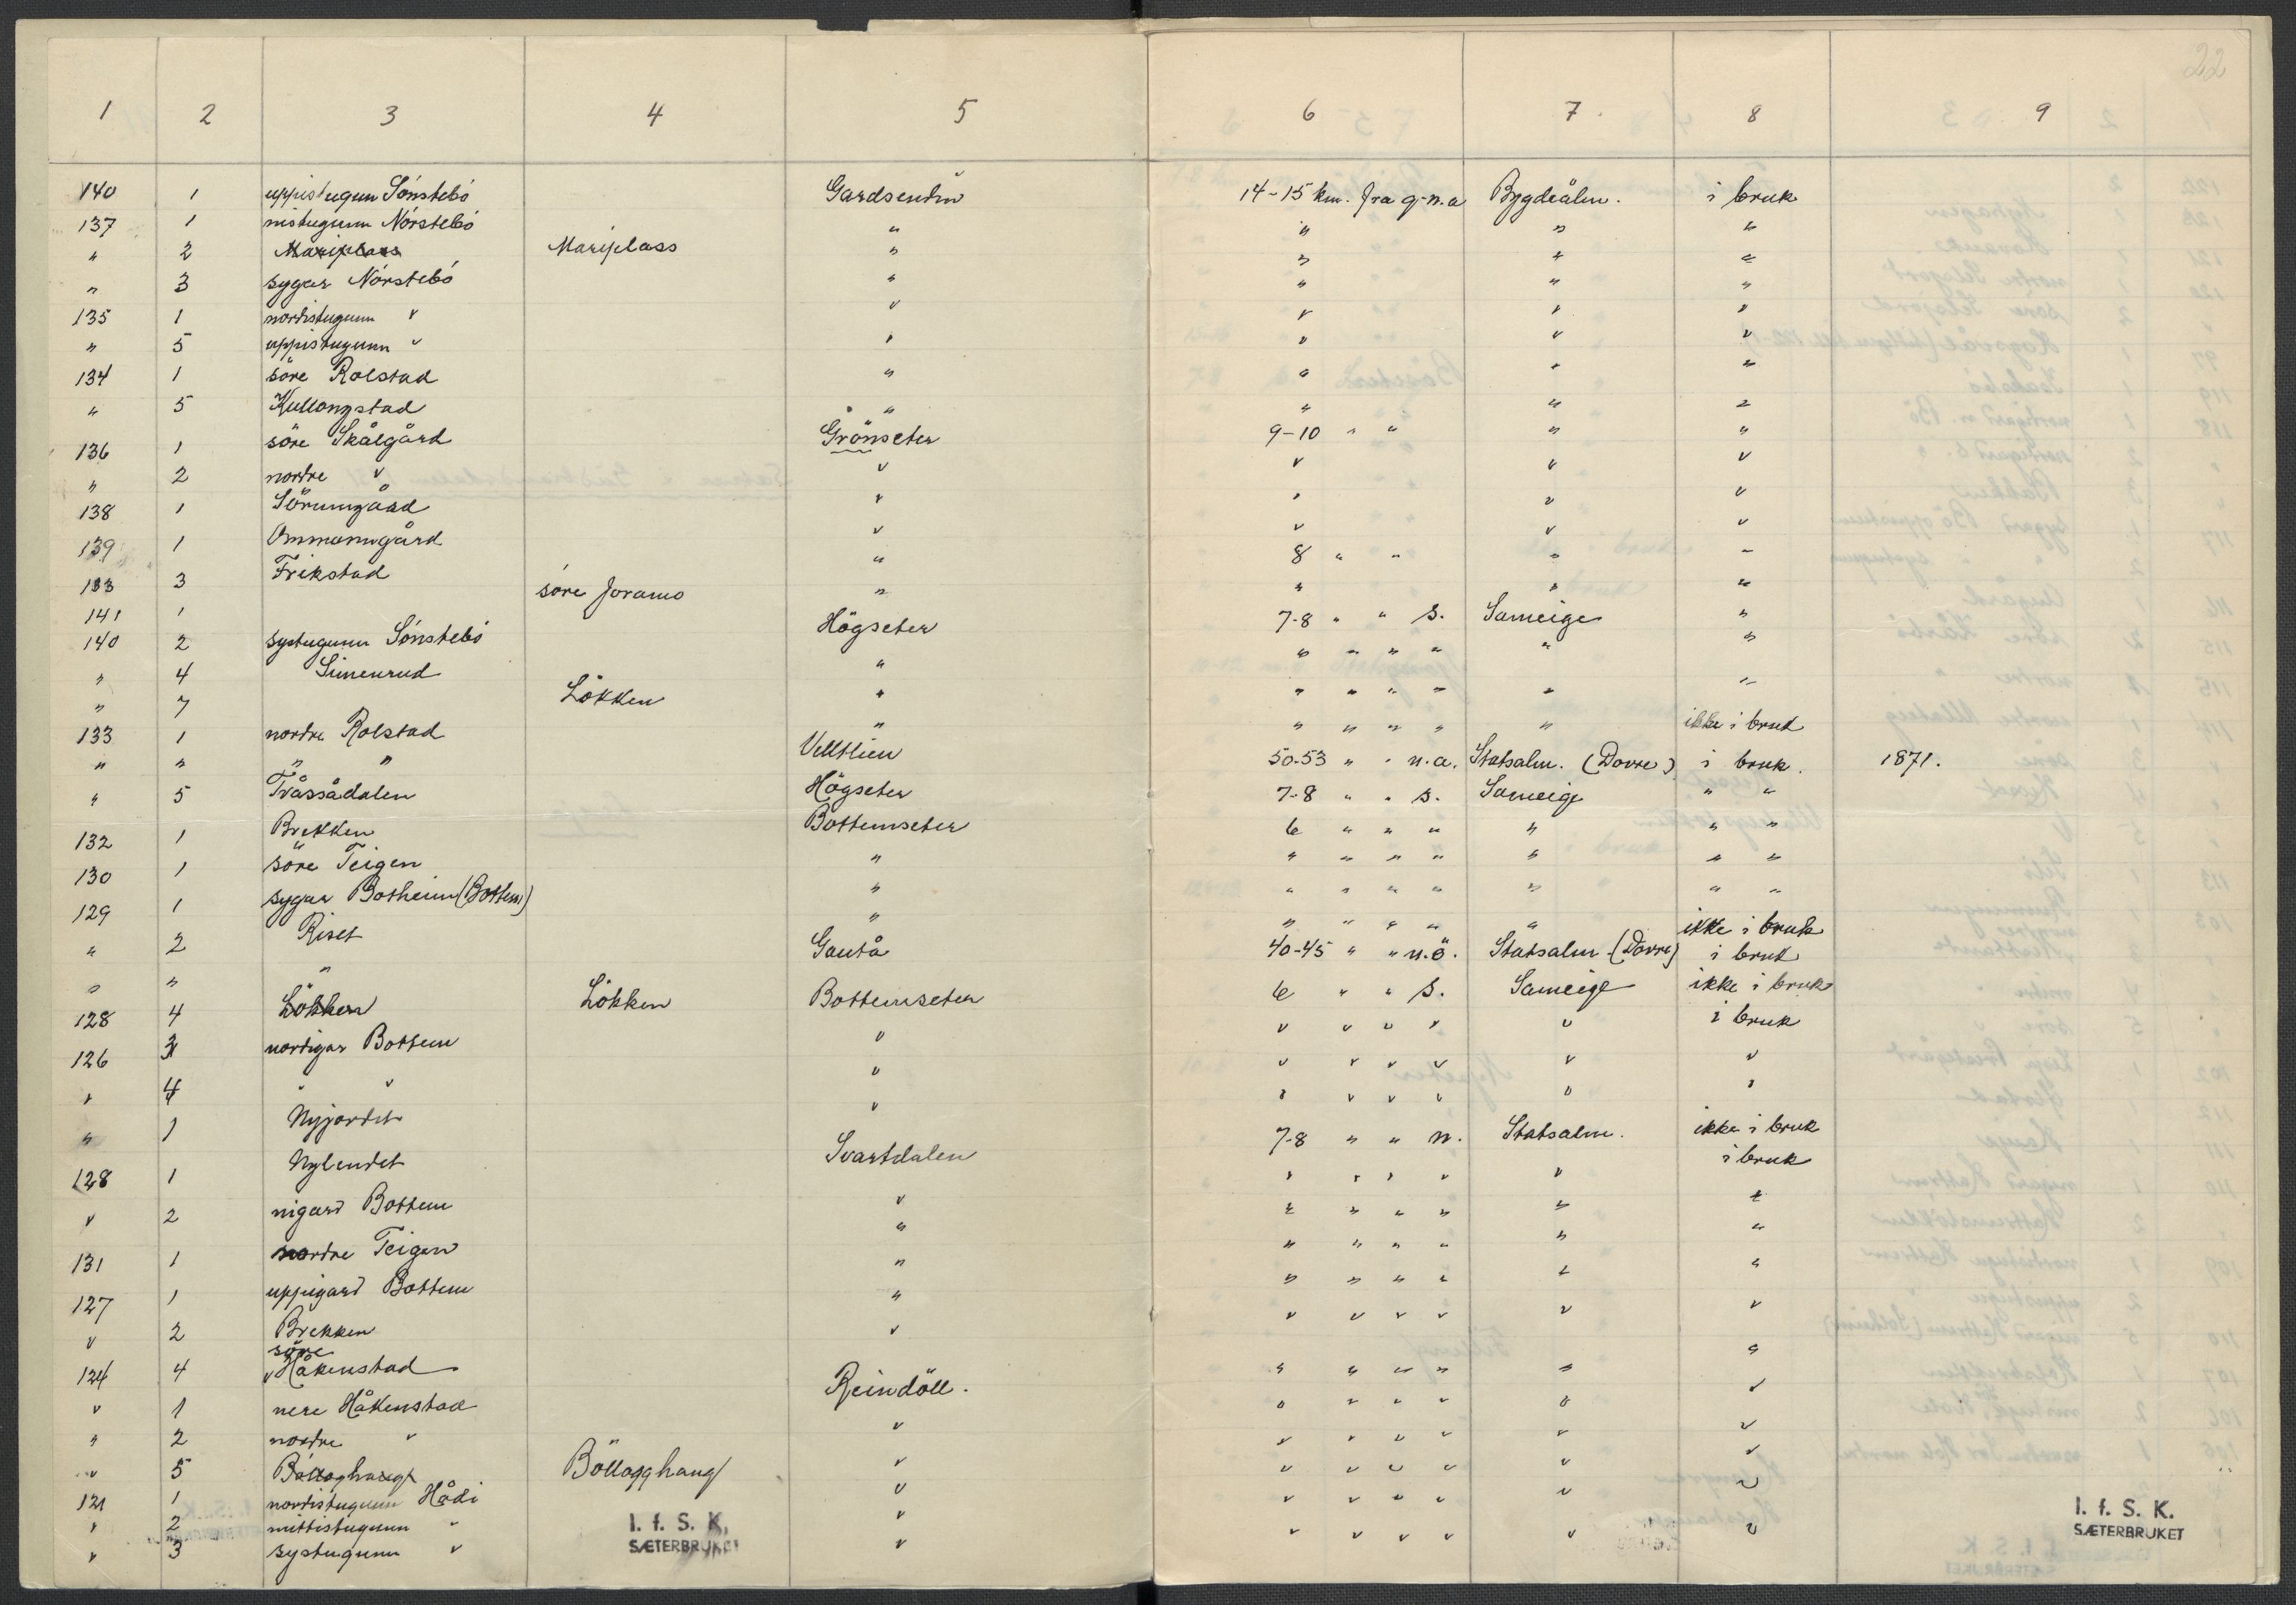 22
1 2 3 4 5 6 7. 8 9
140 1 uppistugun Sónstebó Gardsendin 14-15 km. fra g. n.a Bygdeålm. i bruk
137 1 nistugunn Nórstebó " " " "
" 2 Mariplass Mariplass " " " "
" 3 sygar Nórstebó " " " "
135 1 nordistugunn " " " " "
" 5 uppistugunn " " " " "
134 1 söre Rolstad " " " "
" 5 Kullongstad " " " "
136 1 söre Skålgård Grönseter 9-10 " " " "
" 2 nordre " " " " "
138 1 Sörumgård " " " "
139 1 Ommomgård " " " "
133 3 Frikstad " 8 " " " "
141 1 söre Joramo " " " "
140 2 systugunn Sónstebó Högseter 7-8 " " s. Sameige "
" 4 Simenrud " " " " " " "
" 7 Lökken " " " " " " "
133 1 nordre Rolstad " " " " " " ikke i bruk
" " " " Velltlien 50-53 " " n.a. Statsalm. (Dovre) i bruk. 1871.
" 5 Tvåssådalen Högseter 7-8 " " s. Sameige " "
132 1 Brekken Bottemseter 6 " " " " " "
130 1 söre Teigen " " " " " " " "
129 1 sygar Botheim (Bottem) " " " " " " " "
" 2 Riset " " " " " " ikke i bruk
" " " Gautå 40-45 " " n.ö. Statsalm (Dovre) i bruk
128 4 Lökken Lökken Bottemseter 6 " " s. Sameige ikke i bruk
126 3 nordigar Bottem " " " " " " i bruk
" 4 " " " " " " " " "
" 1 Nyjordet " " " " " " "
128 1 Nylendet Svartdalen 7-8 " " n. Statsalm. ikke i bruk
" 2 nigard Bottem " " " " " " i bruk
131 1 nordre Teigen " " " " " " "
127 1 uppigard Bottem " " " " " " "
" 2 Brekken " " " " " " "
söre
124 4 Håkenstad " " " " " " "
" 1 nere Håkenstad Reindöll. " " " " " "
" 2 nordre " " " " " " " "
" 5 Böllogghaug Böllogghaug " " " " " " "
121 1 nordistugunn Hådi " " " " " " "
" 2 mittistugunn " " " " " " " "
" 3 systugunn " " " " " " " "
I. f. S. K.
SÆTERBRUKET
I. f. S. K.
SÆTERBRUKET